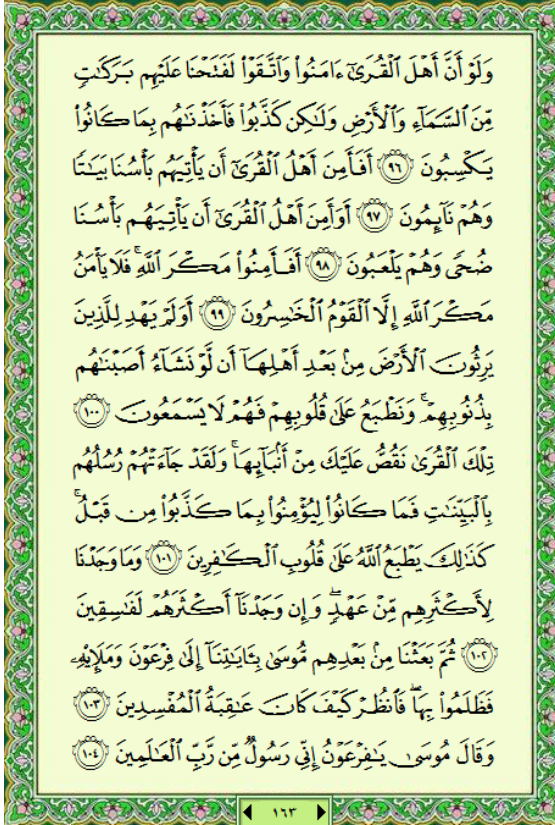 وَلَوْ أَنَّ أَهْلَ ٱلْقُرَىٰٓ ءَامَنُوا۟ وَٱتَّقَوْا۟ لَفَتَحْنَا عَلَيْهِم بَرَكَٰتٍ
مِّنَ ٱلسَّمَآءِ وَٱلْأَرْضِ وَلَٰكِن كَذَّبُوا۟ فَأَخَذْنَٰهُم بِمَا كَانُوا۟
يَكْسِبُونَ ﴿٩٦﴾ أَفَأَمِنَ أَهْلُ ٱلْقُرَىٰٓ أَن يَأْتِيَهُم بَأْسُنَا بَيَٰتًا
وَهُمْ نَآئِمُونَ ﴿٩٧﴾ أَوَأَمِنَ أَهْلُ ٱلْقُرَىٰٓ أَن يَأْتِيَهُم بَأْسُنَا
ضُحًى وَهُمْ يَلْعَبُونَ ﴿٩٨﴾ أَفَأَمِنُوا۟ مَكْرَ ٱللَّهِ ۚ فَلَا يَأْمَنُ
مَكْرَ ٱللَّهِ إِلَّا ٱلْقَوْمُ ٱلْخَٰسِرُونَ ﴿٩٩﴾ أَوَلَمْ يَهْدِ لِلَّذِينَ
يَرِثُونَ ٱلْأَرْضَ مِنۢ بَعْدِ أَهْلِهَآ أَن لَّوْ نَشَآءُ أَصَبْنَٰهُم
بِذُنُوبِهِمْ ۚ وَنَطْبَعُ عَلَىٰ قُلُوبِهِمْ فَهُمْ لَا يَسْمَعُونَ ﴿١٠٠﴾
تِلْكَ ٱلْقُرَىٰ نَقُصُّ عَلَيْكَ مِنْ أَنۢبَآئِهَا ۚ وَلَقَدْ جَآءَتْهُمْ رُسُلُهُم
بِٱلْبَيِّنَٰتِ فَمَا كَانُوا۟ لِيُؤْمِنُوا۟ بِمَا كَذَّبُوا۟ مِن قَبْلُ ۚ
كَذَٰلِكَ يَطْبَعُ ٱللَّهُ عَلَىٰ قُلُوبِ ٱلْكَٰفِرِينَ ﴿١٠١﴾ وَمَا وَجَدْنَا
لِأَكْثَرِهِم مِّنْ عَهْدٍ ۖ وَإِن وَجَدْنَآ أَكْثَرَهُمْ لَفَٰسِقِينَ
﴿١٠٢﴾ ثُمَّ بَعَثْنَا مِنۢ بَعْدِهِم مُّوسَىٰ بِـَٔايَٰتِنَآ إِلَىٰ فِرْعَوْنَ وَمَلَإِيْهِۦ
فَظَلَمُوا۟ بِهَا ۖ فَٱنظُرْ كَيْفَ كَانَ عَٰقِبَةُ ٱلْمُفْسِدِينَ ﴿١٠٣﴾
وَقَالَ مُوسَىٰ يَٰفِرْعَوْنُ إِنِّى رَسُولٌ مِّن رَّبِّ ٱلْعَٰلَمِينَ ﴿١٠٤﴾
١٦٣